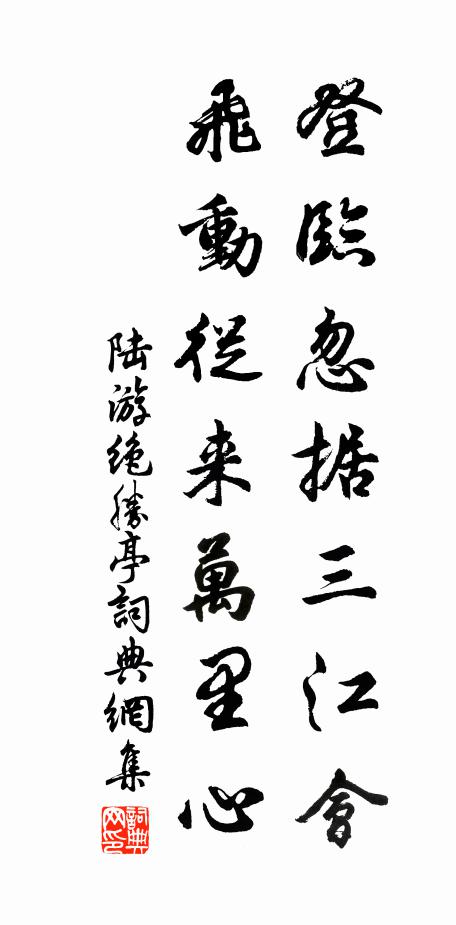 登臨忽据三江會
飛動從来萬里心
陆游絶勝亭詞典網集
詞典网印